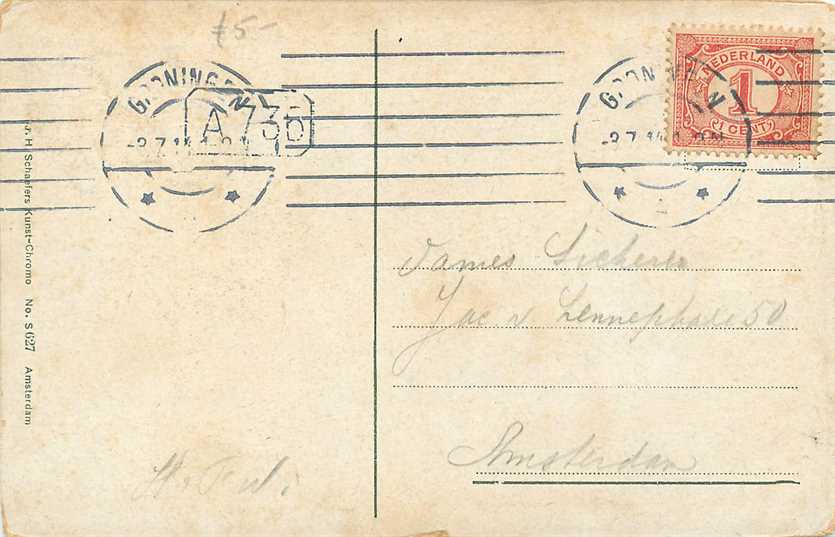 f 5-
GRONINGEN
A 735
GRONINGEN
NEDERLAND
1
1 CENT
J. H. Schaefers Kunst-Chromo No. S 627 Amsterdam
Dames Sickerer
Jac v. Lennepkade 50
Amsterdam